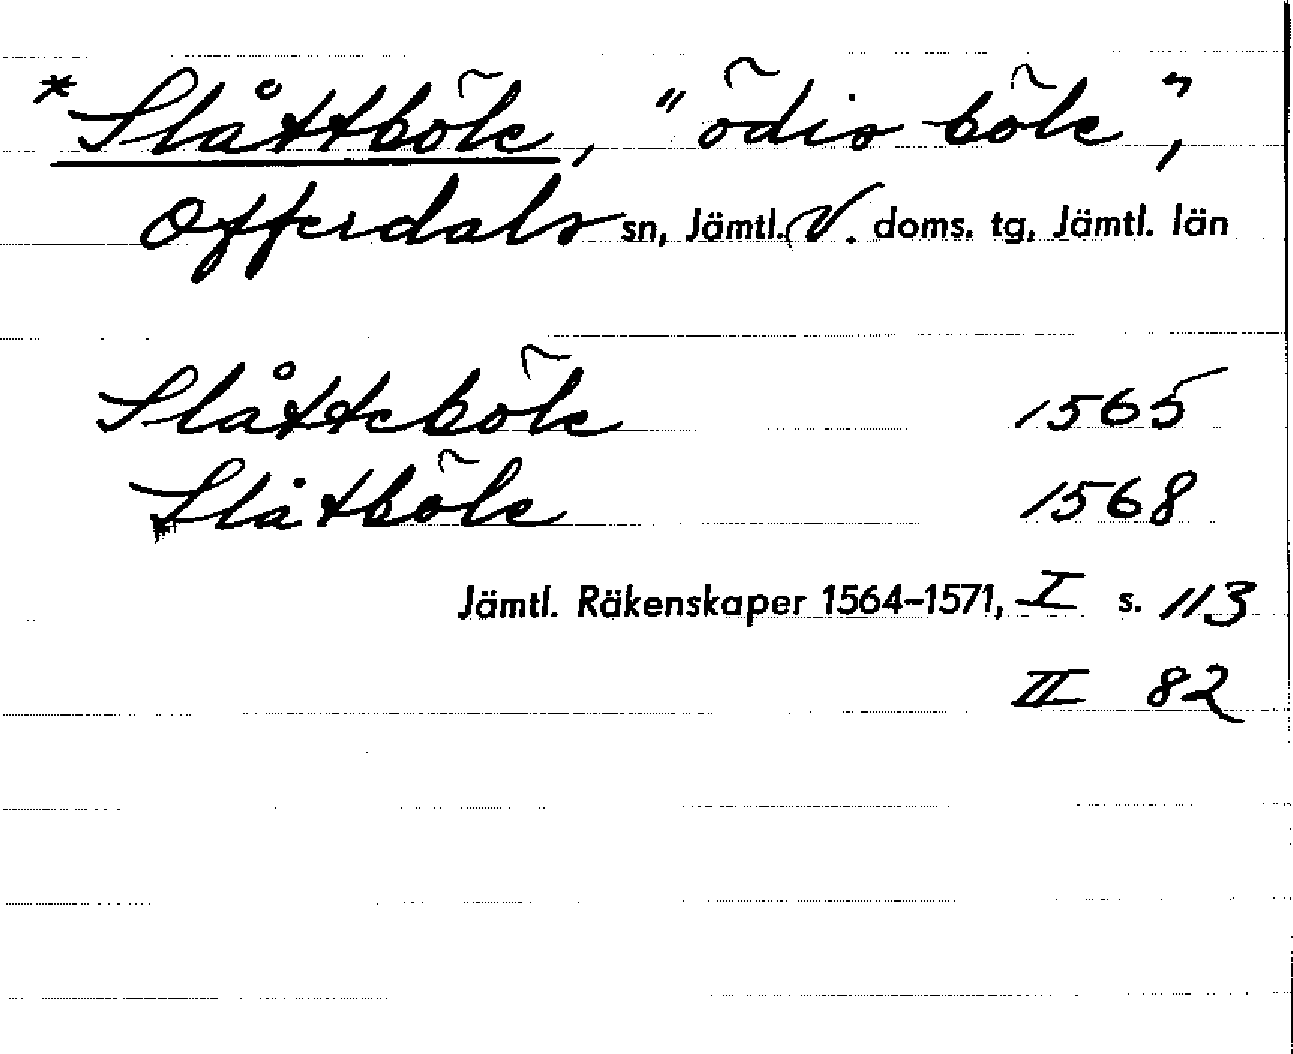 *Slåttböle, "ödis böle",
Offerdals sn, Jämtl. V. doms. tg, Jämtl. län
Slåtteböle 1565
Slåtböle 1568
Jämtl. Räkenskaper 1564-1571, I s. 113
II 82